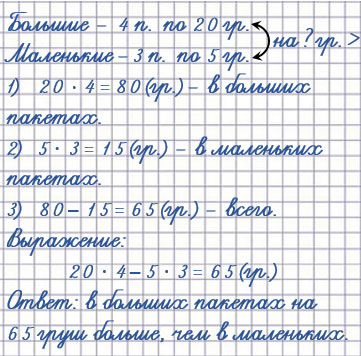 Большие – 4 п. по 20 гр.
на ? гр. >
Маленькие – 3 п. по 5 гр.
1) 20 · 4 = 80 (гр.) – в больших
пакетах.
2) 5 · 3 = 15 (гр.) – в маленьких
пакетах.
3) 80 – 15 = 65 (гр.) – всего.
Выражение:
20 · 4 – 5 · 3 = 65 (гр.)
Ответ: в больших пакетах на
65 груш больше, чем в маленьких.